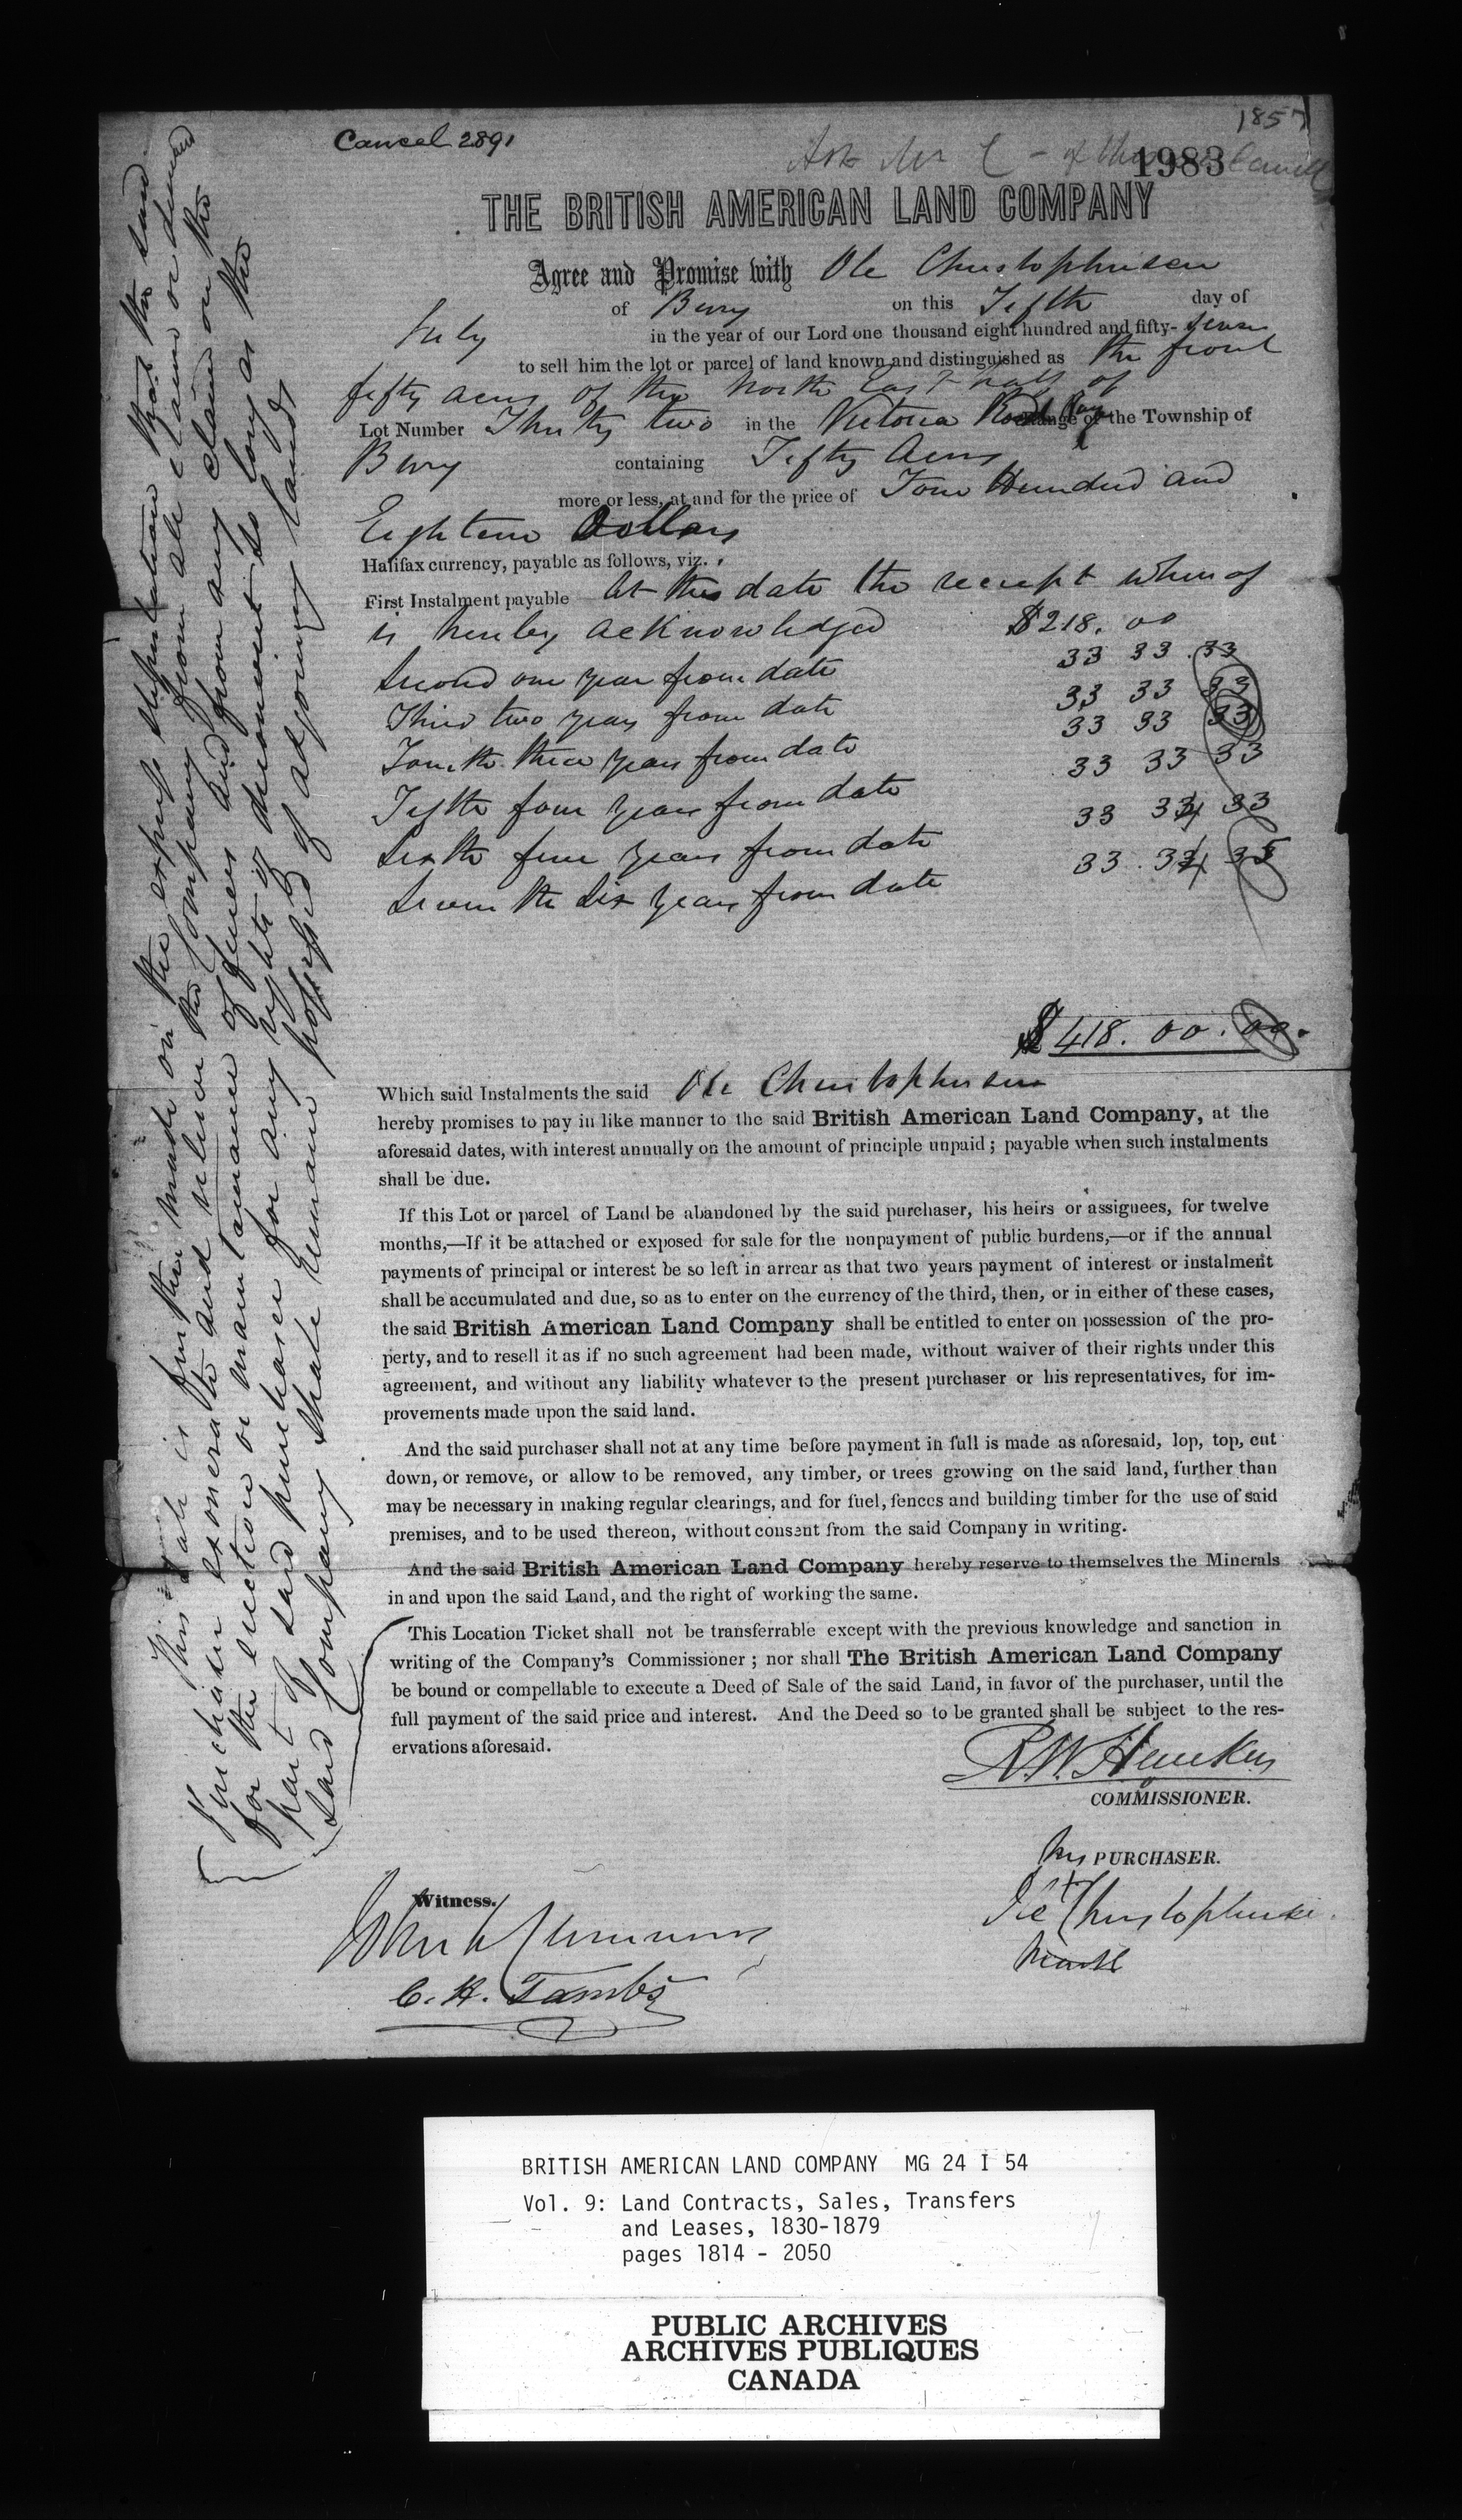 1857
Cancel 2891
Ask Mr C -
1983
THE BRITISH AMERICAN LAND COMPANY
Agree and Promise with Ole Christophersen
of Bury on this Fifth day of
July in the year of our Lord one thousand eight hundred and fifty-seven
to sell him the lot or parcel of land known and distinguished as the front
fifty acres of the North East half of
Lot Number Thirty two in the Victoria Road range of the Township of
Bury containing Fifty Acres
more or less, at and for the price of Four Hundred and
Eighteen Dollars
Halifax currency, payable as follows, viz.
First Instalment payable At this date the receipt whereof
is hereby acknowledged $218. 00
Second one year from date 33 33 .33
Third two years from date 33 33 33
Fourth three years from date 33 33 33
Fifth four years from date 33 33 33
Sixth five years from date 33 334 33
Seventh six years from date 33 . 334 35
$418. 00 . 00.
Which said Instalments the said Ole Christophersen
hereby promises to pay in like manner to the said British American Land Company, at the
aforesaid dates, with interest annually on the amount of principle unpaid; payable when such instalments
shall be due.
If this Lot or parcel of Land be abandoned by the said purchaser, his heirs or assignees, for twelve
months,—If it be attached or exposed for sale for the nonpayment of public burdens,—or if the annual
payments of principal or interest be so left in arrear as that two years payment of interest or instalment
shall be accumulated and due, so as to enter on the currency of the third, then, or in either of these cases,
the said British American Land Company shall be entitled to enter on possession of the pro-
perty, and to resell it as if no such agreement had been made, without waiver of their rights under this
agreement, and without any liability whatever to the present purchaser or his representatives, for im-
provements made upon the said land.
And the said purchaser shall not at any time before payment in full is made as aforesaid, lop, top, cut
down, or remove, or allow to be removed, any timber, or trees growing on the said land, further than
may be necessary in making regular clearings, and for fuel, fences and building timber for the use of said
premises, and to be used thereon, without consent from the said Company in writing.
And the said British American Land Company hereby reserve to themselves the Minerals
in and upon the said Land, and the right of working the same.
This Location Ticket shall not be transferrable except with the previous knowledge and sanction in
writing of the Company's Commissioner; nor shall The British American Land Company
be bound or compellable to execute a Deed of Sale of the said Land, in favor of the purchaser, until the
full payment of the said price and interest. And the Deed so to be granted shall be subject to the res-
ervations aforesaid.
R. W. Heneker
COMMISSIONER.
his PURCHASER.
Ole + Christophersen
mark
Witness.
John
C. H. Tambs
This sale is further made on the express stipulation that the said
Purchaser exonerate and relieve the Company from all claim or demand
for the erection or maintenance of fences and from any claim on the
part of said purchaser for any rights of decouvert so long as the
said Company shall remain possessed of adjoining lands
BRITISH AMERICAN LAND COMPANY MG 24 I 54
Vol. 9: Land Contracts, Sales, Transfers
and Leases, 1830-1879
pages 1814 - 2050
PUBLIC ARCHIVES
ARCHIVES PUBLIQUES
CANADA